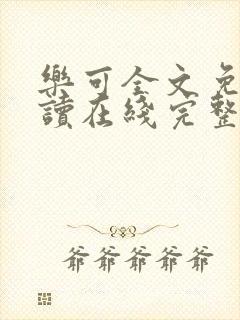 樂可全文免
讀在綫完整
爺爺爺爺爺